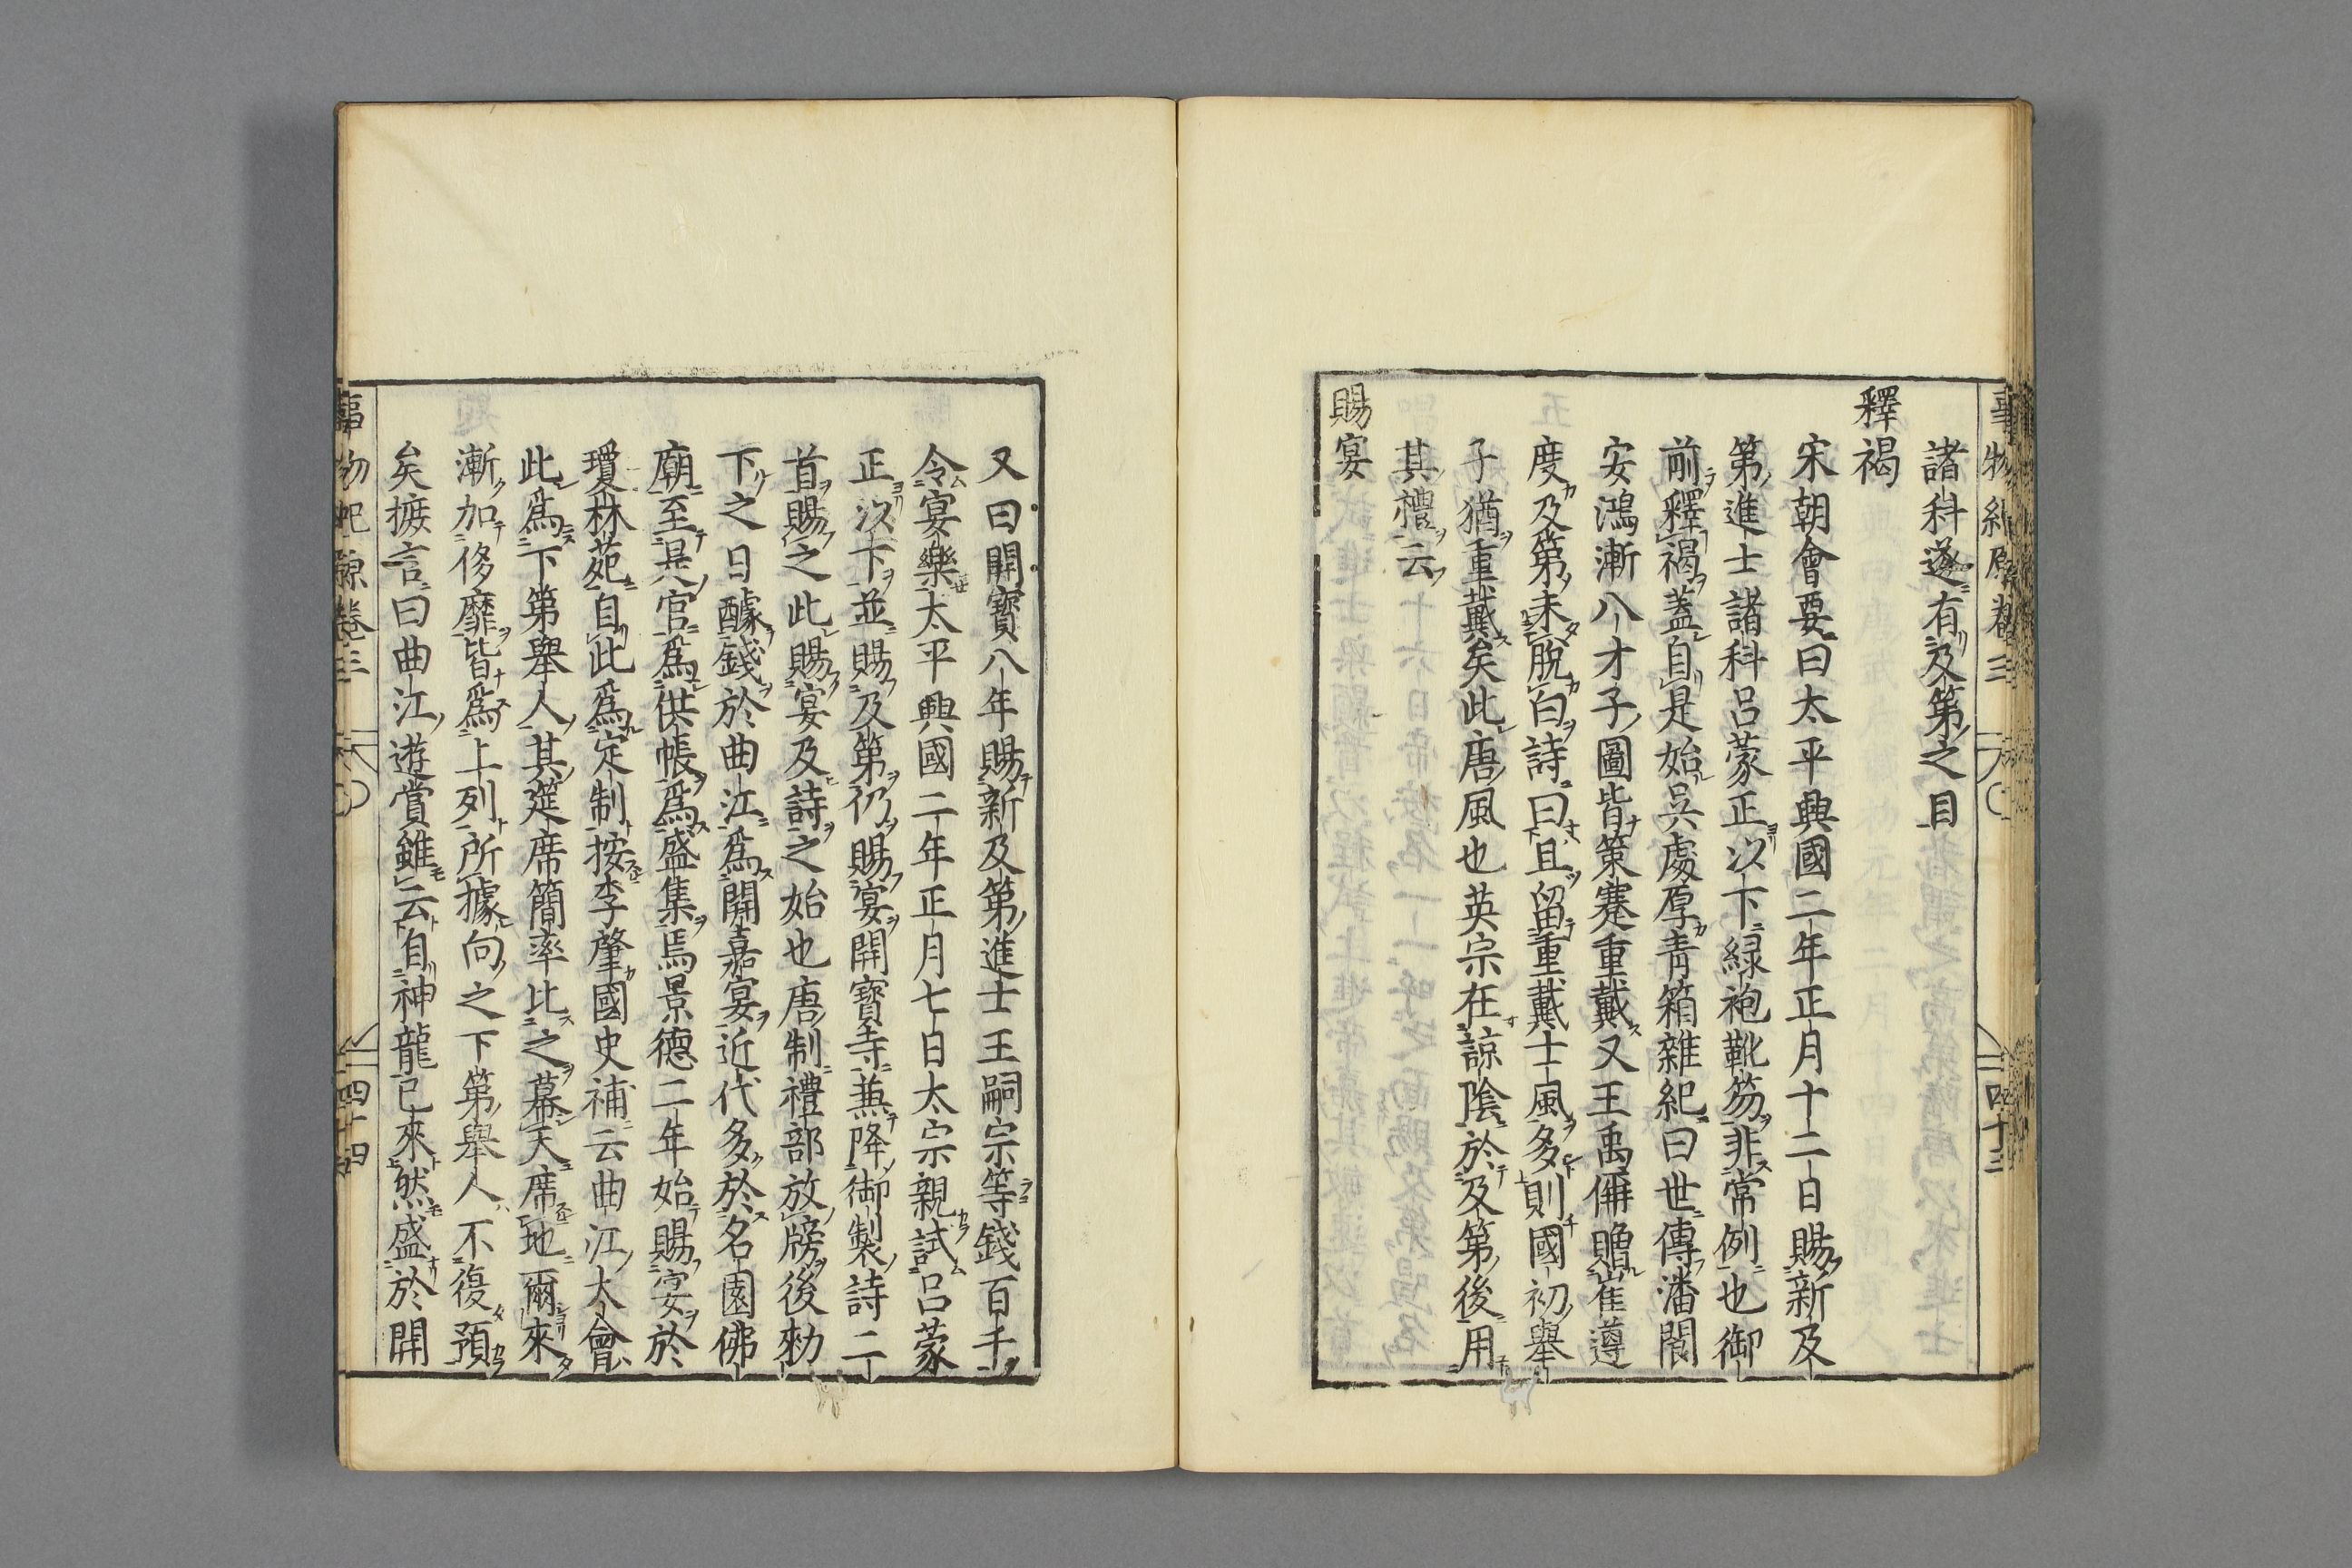 事物紀原卷三 四十三
諸科遂有及第之目
釋褐
宋朝會要曰太平興國二年正月十二日賜新及
第進士諸科呂蒙正以下綠袍靴笏非常例也御
前釋褐蓋自是始吳處厚青箱雜紀曰世傳潘閬
安鴻漸八才子圖皆策蹇重戴又王禹偁贈崔遵
度及第未脫白詩曰且留重戴士風多則國初舉
子猶重戴矣此唐風也英宗在諒陰於及第後用
其禮云
賜宴
又曰開寶八年賜新及第進士王嗣宗等錢百千
令宴樂太平興國二年正月七日太宗親試呂蒙
正以下並賜及第仍賜宴開寶寺兼降御製詩二
首賜之此賜宴及詩之始也唐制禮部放牓後勅
下之日醵錢於曲江爲開嘉宴近代多於名園佛
廟至是官爲供帳爲盛集焉景德二年始賜宴於
瓊林苑自此爲定制按李肇國史補云曲江大會
此爲下第舉人其筵席簡率比之幕天席地爾來
漸加侈靡皆爲上列所據向之下第舉人不復預
矣摭言曰曲江遊賞雖云自神龍已來然盛於開
事物紀原卷三 四十四